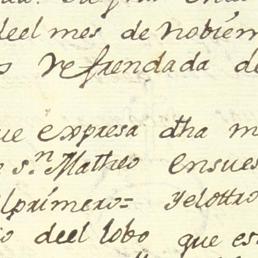 deel mes de nobiem
refrendada de
ue expresa dha m
e s.n Matheo ensues
lprimero= yelottro
io deel lobo que es